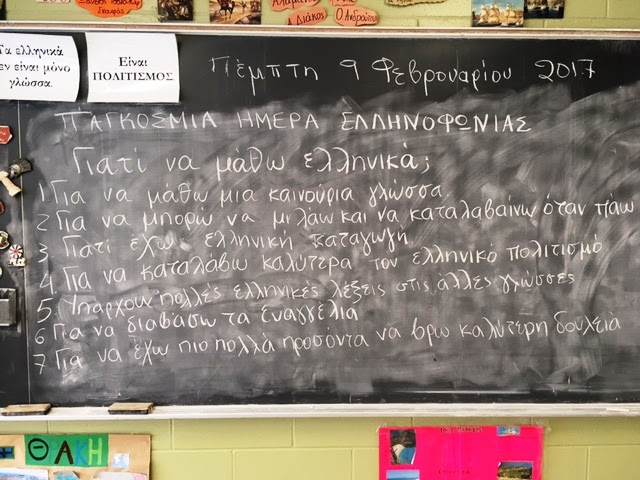 Τα ελληνικά
δεν είναι μόνο
γλώσσα.
Είναι
ΠΟΛΙΤΙΣΜΟΣ
Πέμπτη 9 Φεβρουαρίου 2017
ΠΑΓΚΟΣΜΙΑ ΗΜΕΡΑ ΕΛΛΗΝΟΦΩΝΙΑΣ
Γιατί να μάθω ελληνικά;
1 Για να μάθω μια καινούρια γλώσσα
2 Για να μπορώ να μιλάω και να καταλαβαίνω όταν πάω
3. Γιατί έχω ελληνική καταγωγή
4. Για να καταλάβω καλύτερα τον ελληνικό πολιτισμό
5. Υπάρχουν πολλές ελληνικές λέξεις στις άλλες γλώσσες
6 Για να διαβάσω τα Ευαγγέλια
7 Για να έχω πιο πολλά προσόντα να βρω καλύτερη δουλειά
ΘΑΚΗ